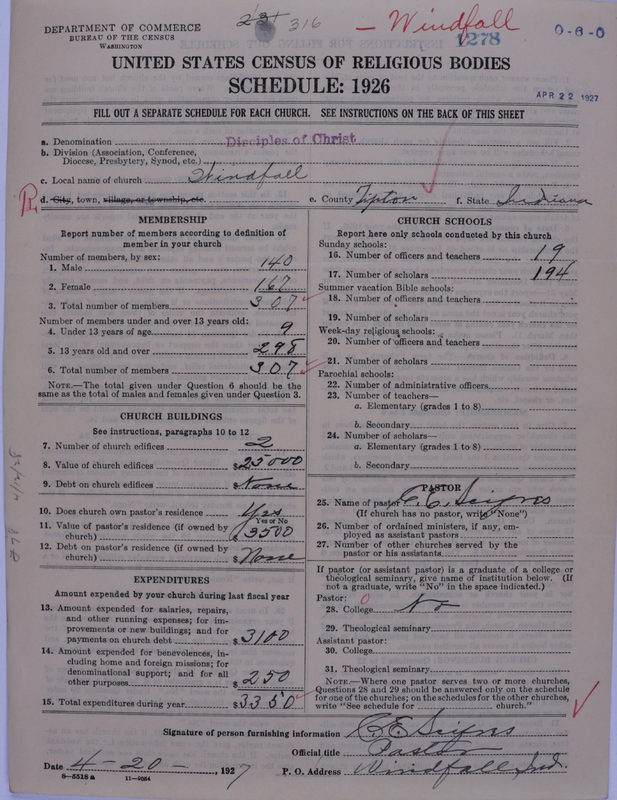 DEPARTMENT OF COMMERCE
BUREAU OF THE CENSUS
WASHINGTON
231 316
— Windfall
1278
0-6-0
UNITED STATES CENSUS OF RELIGIOUS BODIES
SCHEDULE: 1926
APR 22 1927
FILL OUT A SEPARATE SCHEDULE FOR EACH CHURCH. SEE INSTRUCTIONS ON THE BACK OF THIS SHEET
a. Denomination Disciples of Christ
b. Division (Association, Conference,
Diocese, Presbytery, Synod, etc.)
c. Local name of church Windfall
d. City, town, village, or township, etc. e. County Tipton f. State Indiana
MEMBERSHIP
Report number of members according to definition of
member in your church
Number of members, by sex:
1. Male 140
2. Female 167
3. Total number of members 307
Number of members under and over 13 years old:
4. Under 13 years of age 9
5. 13 years old and over 298
6. Total number of members 307
NOTE.—The total given under Question 6 should be
same as the total of males and females given under Question 3.
CHURCH BUILDINGS
See instructions, paragraphs 10 to 12
7. Number of church edifices 2
8. Value of church edifices $25000
9. Debt on church edifices $None
10. Does church own pastor's residence Yes
Yes or No
11. Value of pastor's residence (if owned by
church) $3500
12. Debt on pastor's residence (if owned by
church) $None
EXPENDITURES
Amount expended by your church during last fiscal year
13. Amount expended for salaries, repairs,
and other running expenses; for im-
provements or new buildings; and for
payments on church debt $3100
14. Amount expended for benevolences, in-
cluding home and foreign missions; for
denominational support; and for all
other purposes $250
15. Total expenditures during year $3350
CHURCH SCHOOLS
Report here only schools conducted by this church
Sunday schools:
16. Number of officers and teachers 19
17. Number of scholars 194
Summer vacation Bible schools:
18. Number of officers and teachers
19. Number of scholars
Week-day religious schools:
20. Number of officers and teachers
21. Number of scholars
Parochial schools:
22. Number of administrative officers
23. Number of teachers—
a. Elementary (grades 1 to 8)
b. Secondary
24. Number of scholars—
a. Elementary (grades 1 to 8)
b. Secondary
PASTOR
25. Name of pastor
(If church has no pastor, write "None")
26. Number of ordained ministers, if any, em-
ployed as assistant pastors
27. Number of other churches served by the
pastor or his assistants
If pastor (or assistant pastor) is a graduate of a college or
theological seminary, give name of institution below. (If
not a graduate, write "No" in the space indicated.)
Pastor: 0
28. College No
29. Theological seminary
Assistant pastor:
30. College
31. Theological seminary
NOTE.—Where one pastor serves two or more churches,
Questions 28 and 29 should be answered only on the schedule
for one of the churches; on the schedules for the other churches,
write "See schedule for church."
Signature of person furnishing information
Official title Pastor
Date 4-20-, 1927 P. O. Address Windfall Ind.
8—5518 a 11—9064